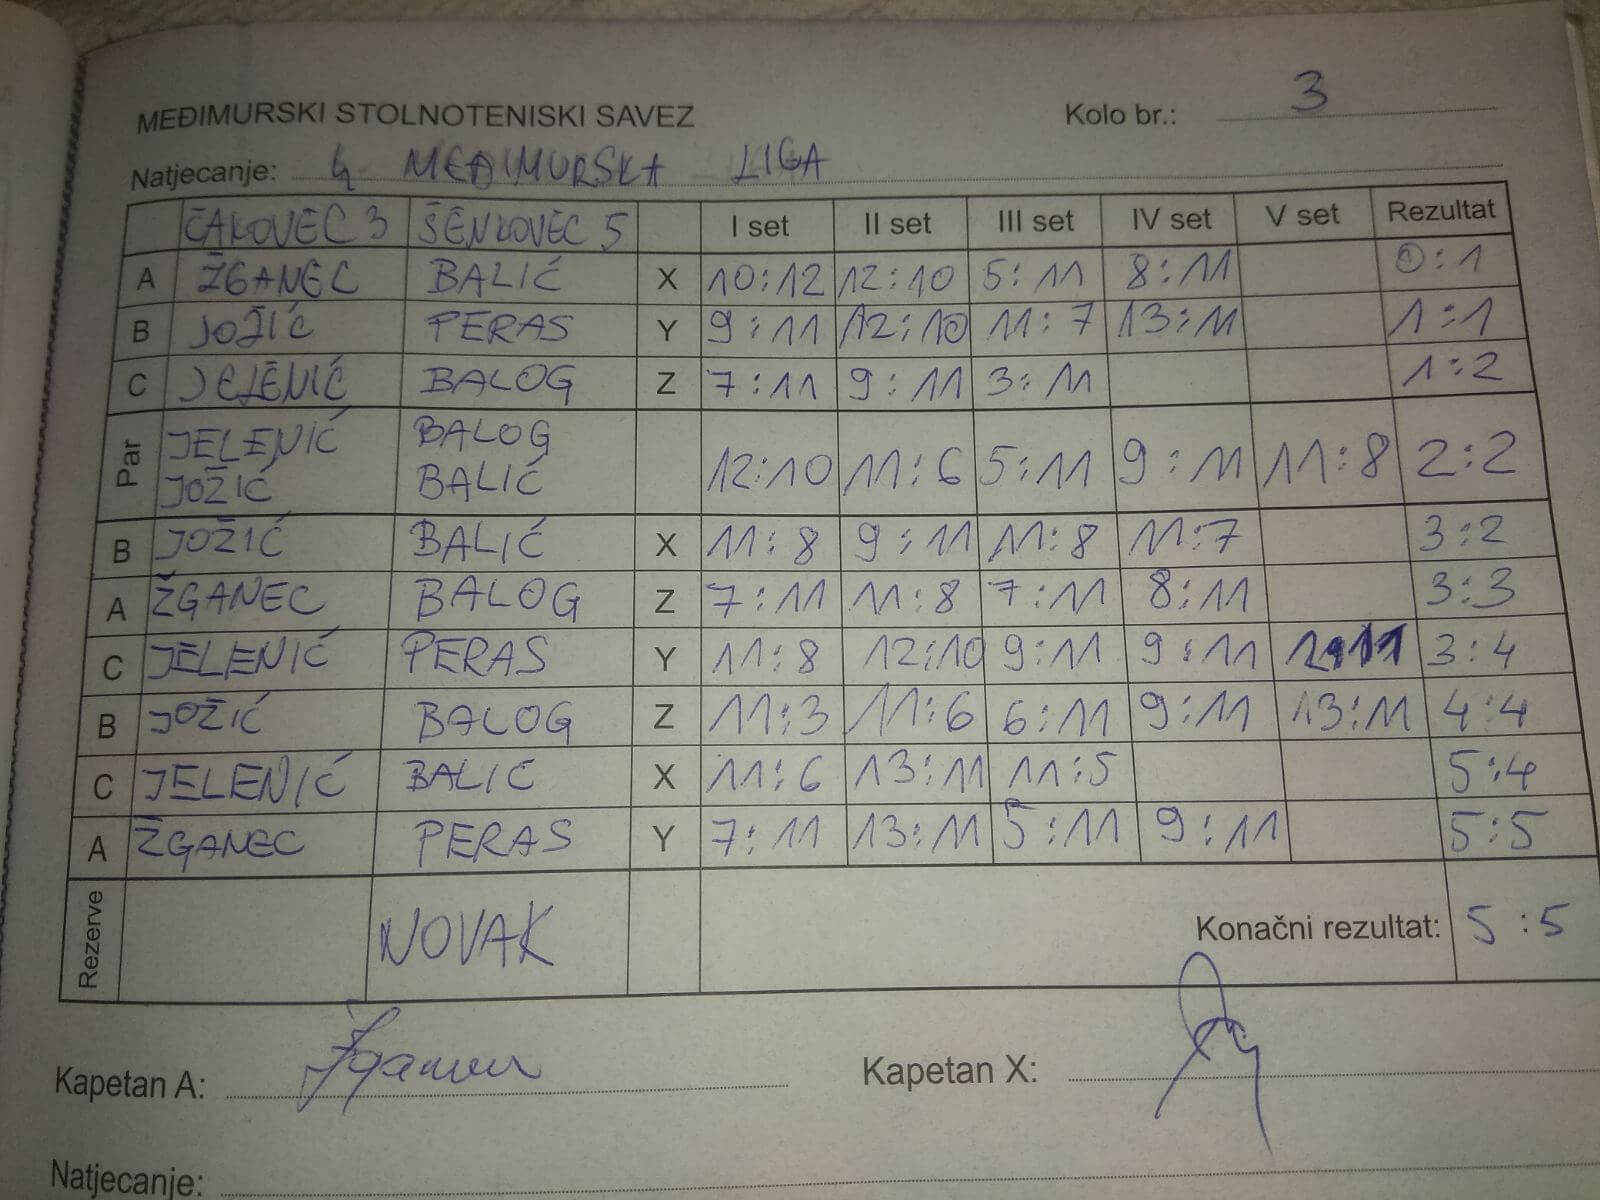 MEĐIMURSKI STOLNOTENISKI SAVEZ Kolo br.: 3
Natjecanje: 4 MEĐIMURSKA LIGA
ČAKOVEC 3 ŠENKOVEC 5 I set II set III set IV set V set Rezultat
A ŽGANEC BALIĆ X 10:12 12:10 5:11 8:11 0:1
B JOŽIĆ PERAS Y 9:11 12:10 11:7 13:11 1:1
C JELENIĆ BALOG Z 7:11 9:11 3:11 1:2
Par JELENIĆ BALOG
JOŽIĆ BALIĆ 12:10 11:6 5:11 9:11 11:8 2:2
B JOŽIĆ BALIĆ X 11:8 9:11 11:8 11:7 3:2
A ŽGANEC BALOG Z 7:11 11:8 7:11 8:11 3:3
C JELENIĆ PERAS Y 11:8 12:10 9:11 9:11 3:4
B JOŽIĆ BALOG Z 11:3 11:6 6:11 9:11 13:11 4:4
C JELENIĆ BALIĆ X 11:6 13:11 11:5 5:4
A ŽGANEC PERAS Y 7:11 13:11 5:11 9:11 5:5
Rezerve NOVAK Konačni rezultat: 5:5
Kapetan A: Kapetan X:
Natjecanje: